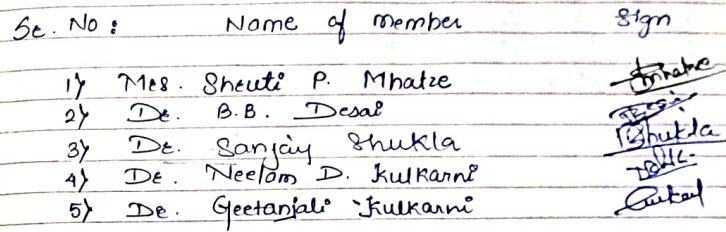 Sr. No : Name of member Sign
1) Mrs. Shruti P. Mhatre Smhatre
2) Dr. B.B. Desai Desai
3) Dr. Sanjay Shukla Shukla
4) Dr. Neelam D. Kulkarni
5) Dr. Geetanjali Kulkarni